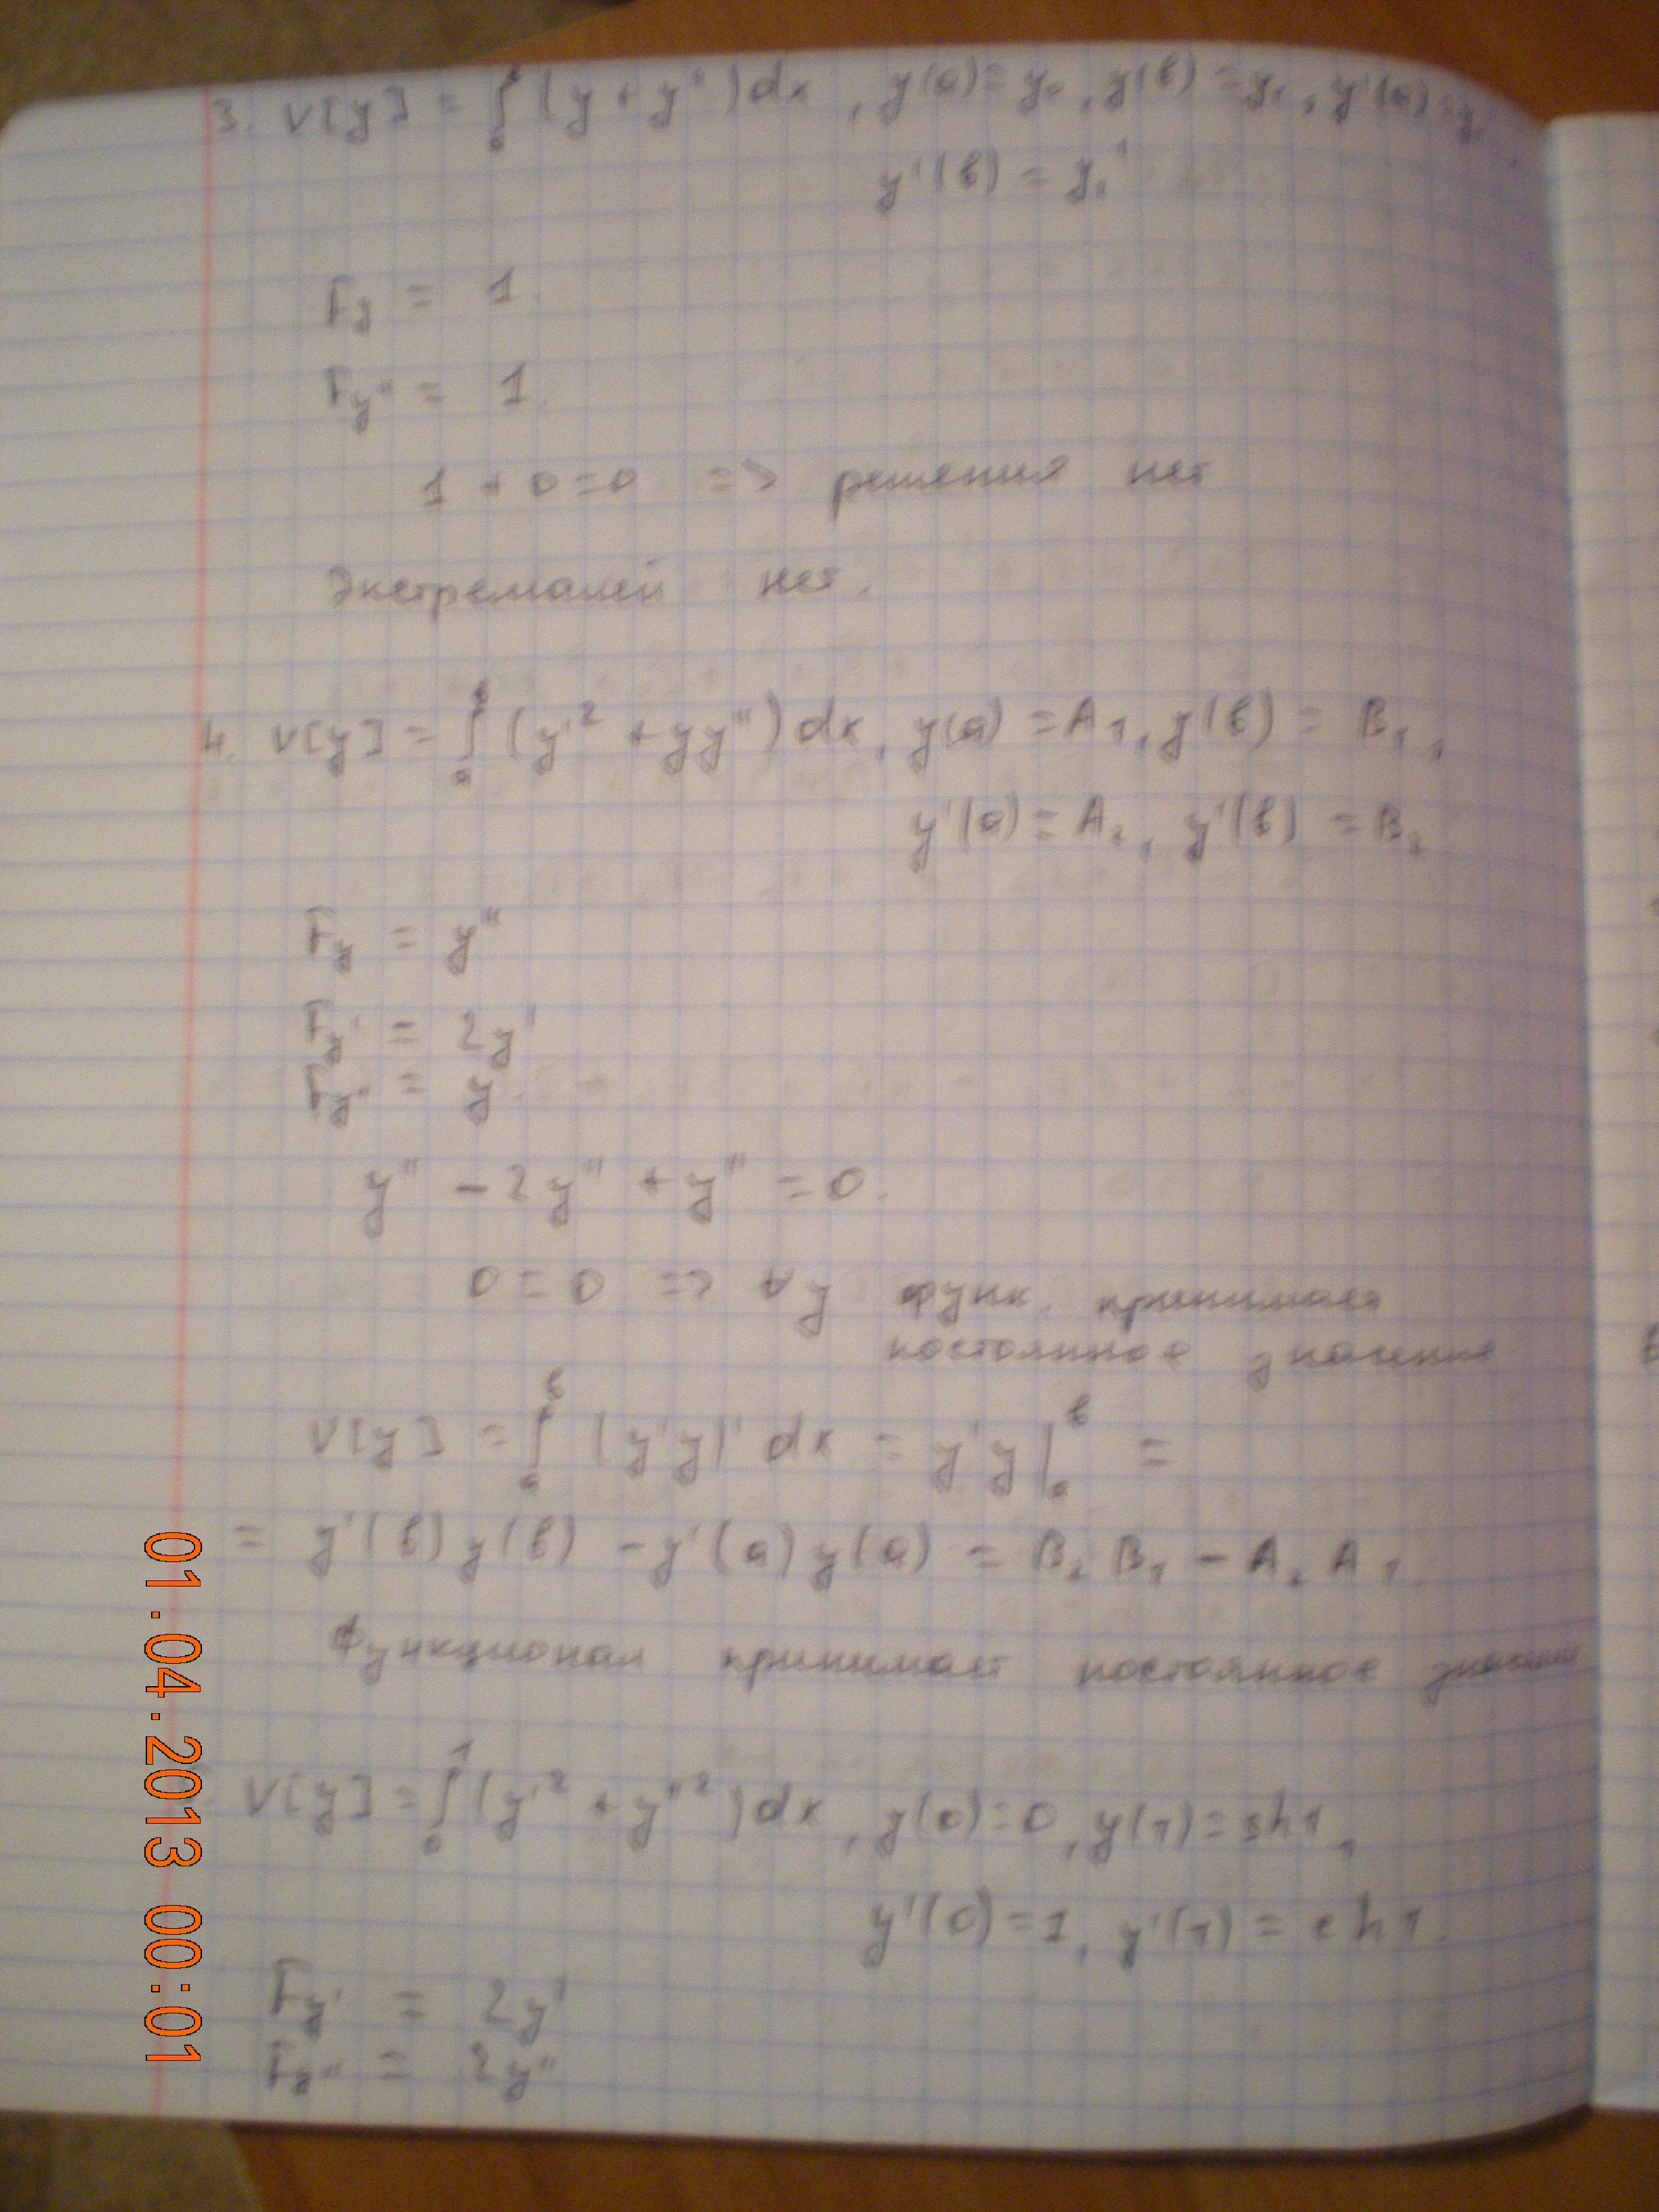 3. V[y] = ∫ₐᵇ (y + y'') dx, y(a) = y₀, y(b) = y₁, y'(a) =
y'(b) = y₁'
F_y = 1.
F_y'' = 1.
1 + 0 = 0 => решения нет
Экстремалей нет.
4. V[y] = ∫ₐᵇ (y'² + yy'') dx, y(a) = A₁, y(b) = B₁,
y'(a) = A₂, y'(b) = B₂
F_y = y''
F_y' = 2y'
F_y'' = y.
y'' - 2y'' + y'' = 0.
0 = 0 => ∀y функ. принимает
постоянное значение
V[y] = ∫ₐᵇ (y'y)' dx = y'y|ₐᵇ =
= y'(b) y(b) - y'(a) y(a) = B₂ B₁ - A₂ A₁.
Функционал принимает постоянное значение
V[y] = ∫₀¹ (y'² + y''²) dx, y(0) = 0, y(1) = sh1,
y'(0) = 1, y'(1) = ch1.
F_y' = 2y'
F_y'' = 2y''
01.04.2013 00:01